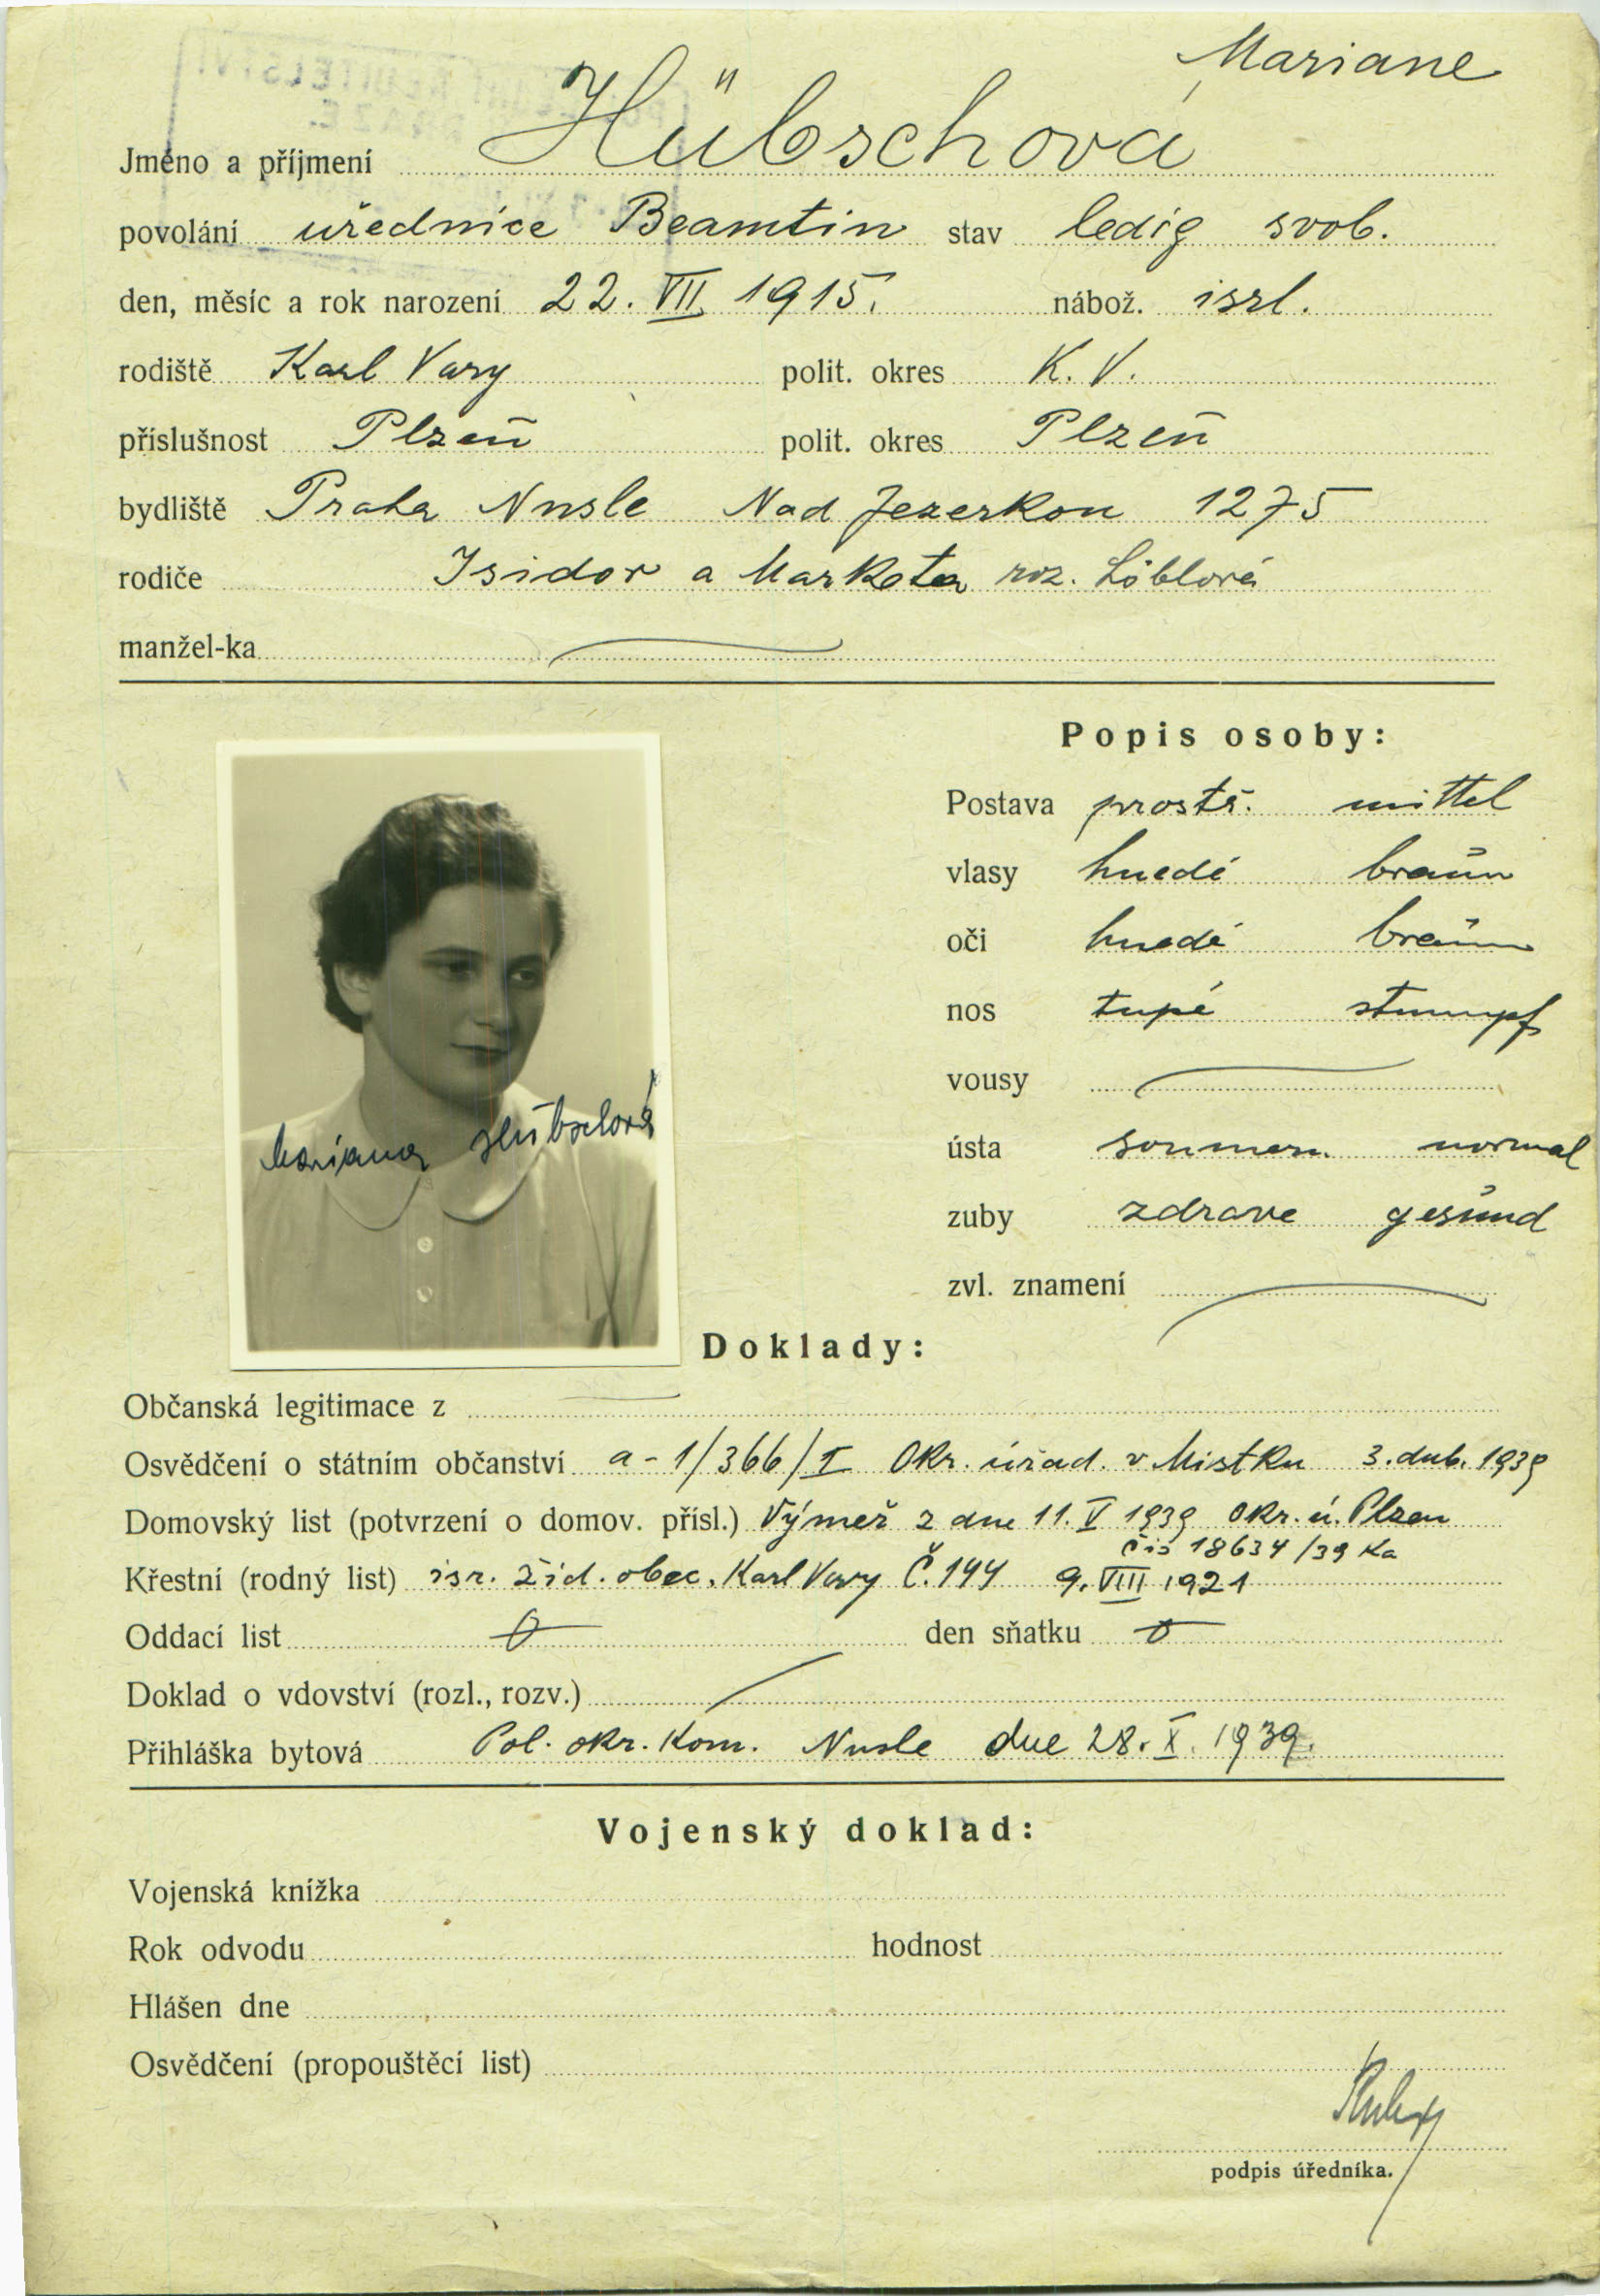 Mariane
Jméno a příjmení Hübschová
povolání uřednice Beamtin stav ledig svob.
den, měsíc a rok narození 22. VII 1915. nábož. isrl.
rodiště Karl Vary polit. okres K. V.
příslušnost Plzeň polit. okres Plzeň
bydliště Praha Nusle Nad Jezerkou 1275
rodiče Isidor a Marketa roz. Löblová
manžel-ka
Popis osoby:
Postava prostř. mittel
vlasy hnedé braun
oči hnedé braun
nos tupé stumpf
vousy
ústa soumern. normal
zuby zdrave gesund
zvl. znamení
Mariana Hübschová
Doklady:
Občanská legitimace z
Osvědčení o státním občanství a-1/366/I Okr. úřad. v Mistku 3. dub. 1939
Domovský list (potvrzení o domov. přísl.) Výměř z dne 11. V 1939 Okr. ú. Plzen
čis 18634/39 Ka
Křestní (rodný list) isr. žid. obec. Karl Vary Č. 144 9. VIII 1921
Oddací list den sňatku
Doklad o vdovství (rozl., rozv.)
Přihláška bytová Pol. okr. Kom. Nusle dne 28. X. 1939.
Vojenský doklad:
Vojenská knížka
Rok odvodu hodnost
Hlášen dne
Osvědčení (propouštěcí list)
podpis úředníka.